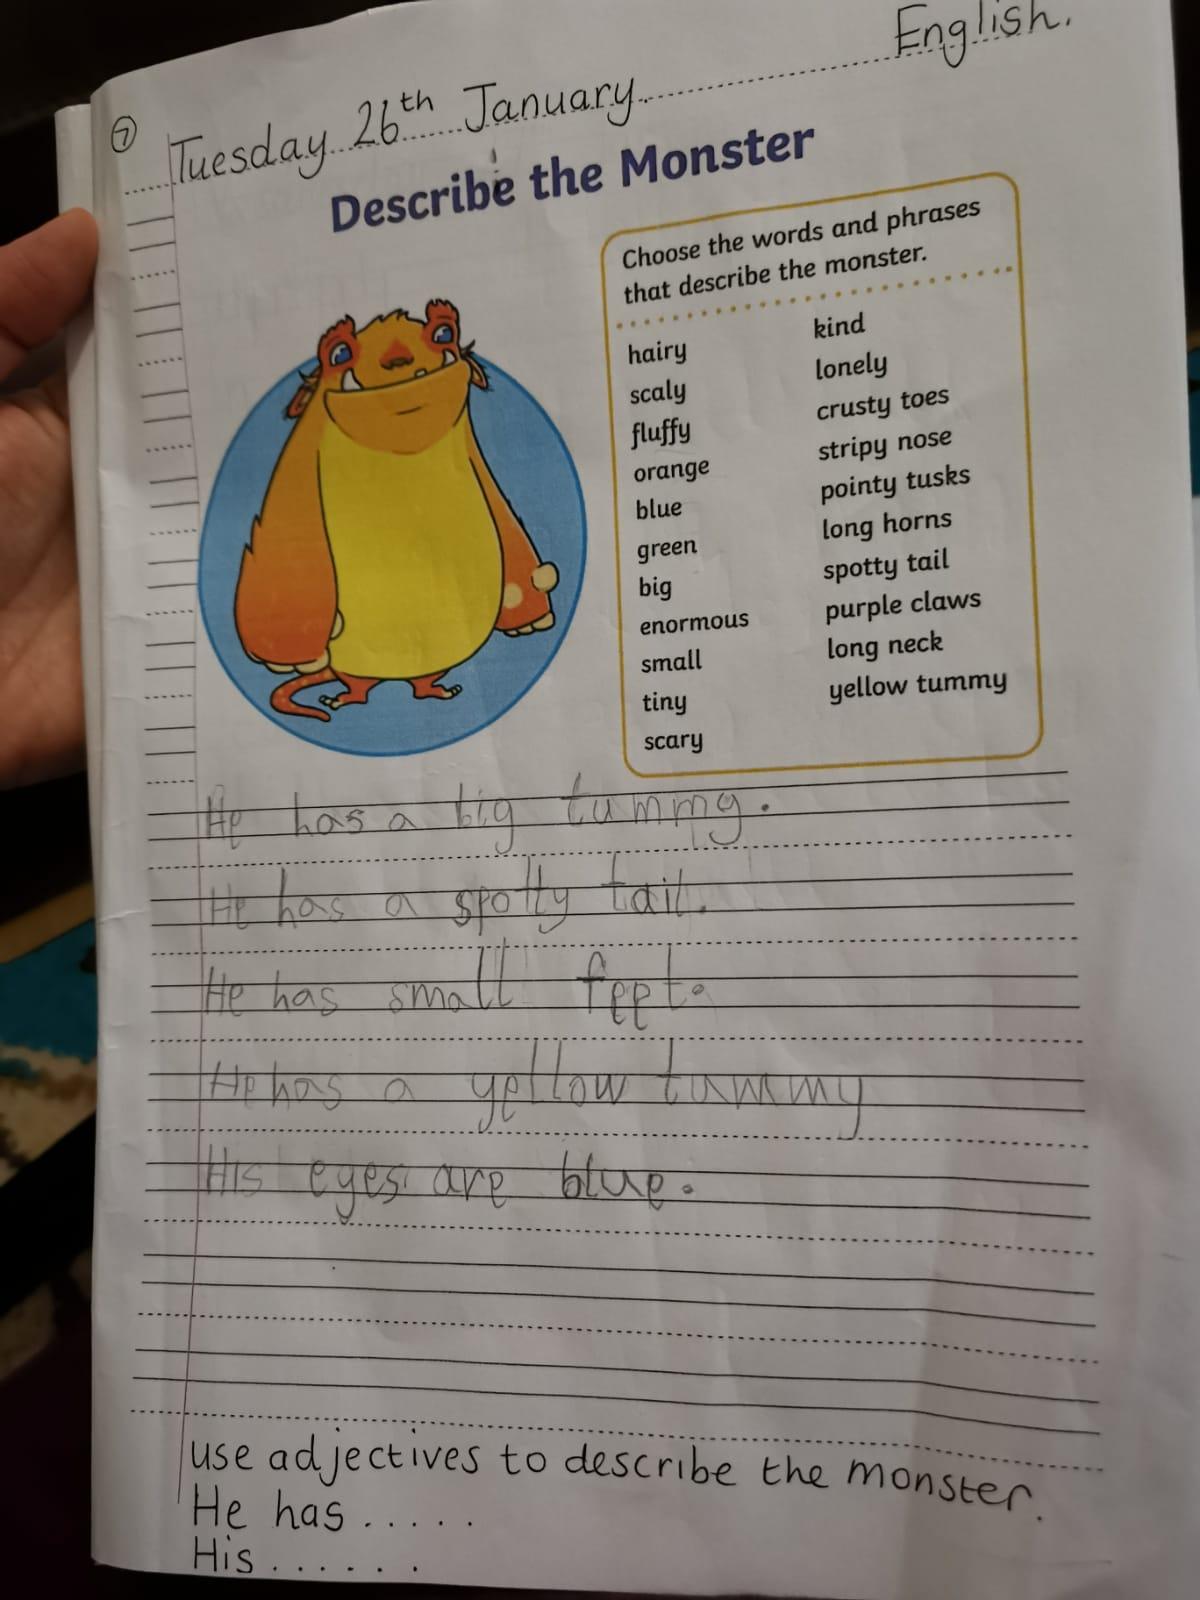 7
English.
Tuesday 26th January.
Describe the Monster
Choose the words and phrases
that describe the monster.
hairy
scaly
fluffy
orange
blue
green
big
enormous
small
tiny
scary
kind
lonely
crusty toes
stripy nose
pointy tusks
long horns
spotty tail
purple claws
long neck
yellow tummy
He has a big tummy.
He has a spotty tail.
He has small feet.
He has a yellow tummy
His eyes are blue.
use adjectives to describe the monster.
He has .....
His ......